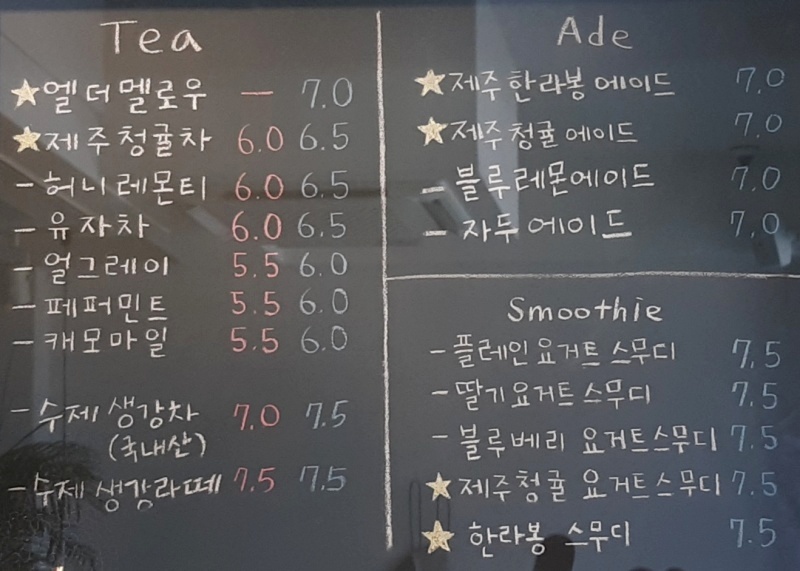 Tea
★엘더멜로우 — 7.0
★제주청귤차 6.0 6.5
- 허니레몬티 6.0 6.5
- 유자차 6.0 6.5
- 얼그레이 5.5 6.0
- 페퍼민트 5.5 6.0
- 캐모마일 5.5 6.0
- 수제 생강차 7.0 7.5
(국내산)
- 수제 생강라떼 7.5 7.5
Ade
★제주한라봉에이드 7.0
★제주청귤에이드 7.0
- 블루레몬에이드 7.0
- 자두에이드 7.0
Smoothie
- 플레인요거트스무디 7.5
- 딸기요거트스무디 7.5
- 블루베리 요거트스무디 7.5
★제주청귤 요거트스무디 7.5
★한라봉 스무디 7.5